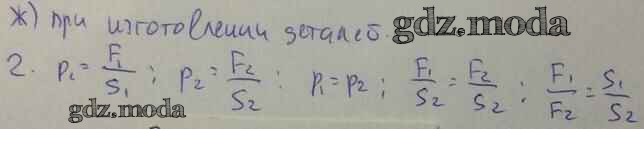 ж) при изготовлении деталей. gdz.moda
2. p₁ = F₁/S₁ ; p₂ = F₂/S₂ : p₁ = p₂ ; F₁/S₂ = F₂/S₂ ; F₁/F₂ = S₁/S₂
gdz.moda